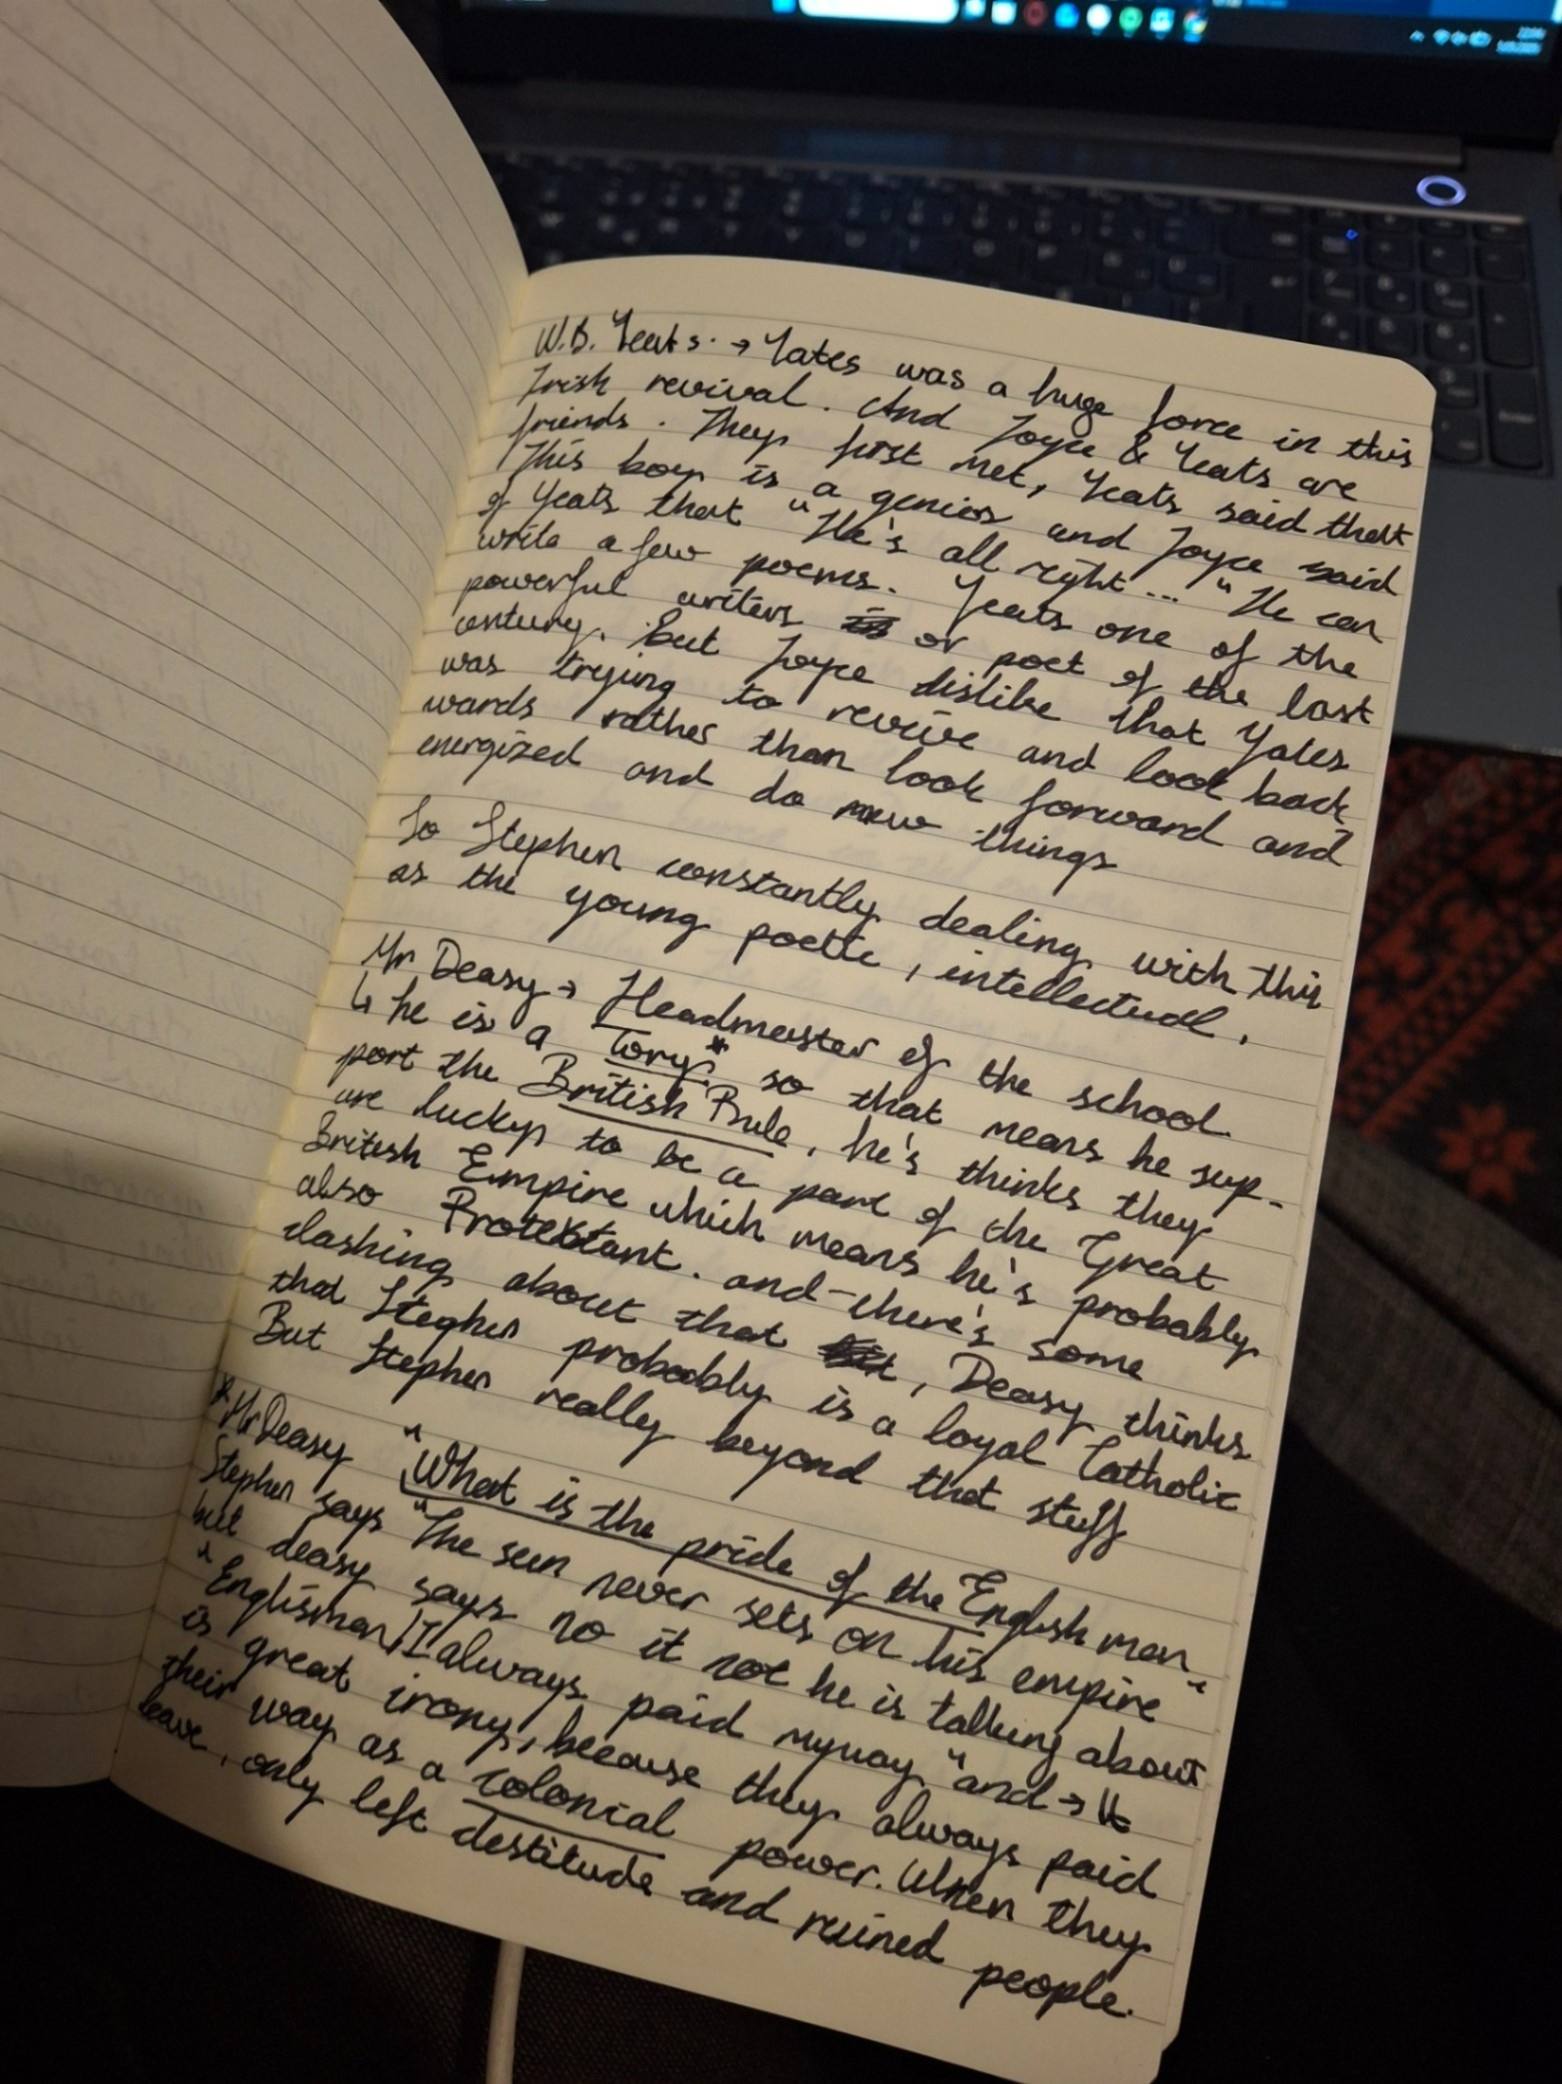 W.B. Yeats. → Yates was a huge force in this
Irish revival. And Joyce & Yeats are
friends. They first met, Yeats said that
This boy is a genios and Joyce said
of Yeats that "He's all right... "He can
write a few poems. Yeats one of the
powerful writers or poet of the last
century. But Joyce dislike that Yates
was trying to revive and look back
wards rather than look forward and
energized and do new things
So Stephen constantly dealing with this
as the young poetic, intellectual.
Mr Deasy → Headmaster of the school
↳ he is a Tory* so that means he sup-
port the British Rule, he's thinks they
are lucky to be a part of the Great
British Empire which means he's probably
also Protestant. and there's some
clashing about that, Deasy thinks
that Stephen probably is a loyal Catholic
But Stephen really beyond that stuff
*Mr Deasy "What is the pride of the English man"
Stephen says "The sun never sets on his empire"
but deasy says no it not he is talking about
"Englishman/I always paid myway" and → It
is great irony, because they always paid
their way as a colonial power. When they
leave, only left destitude and ruined people.